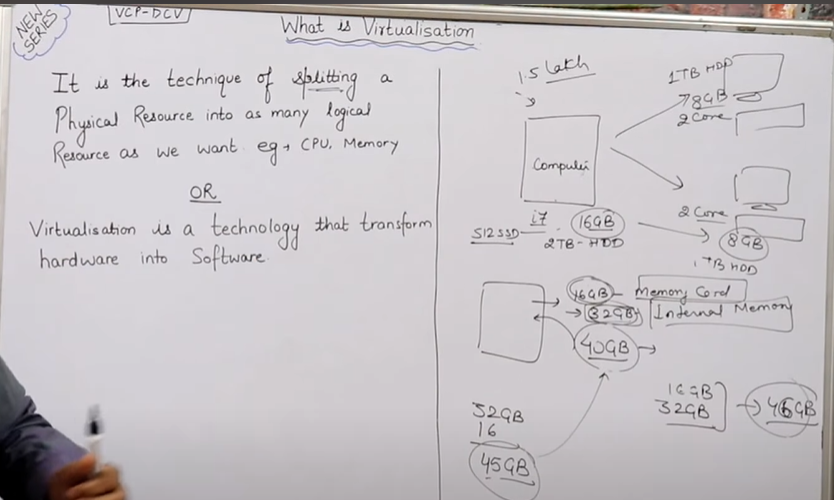 NEW
SERIES
VCP-DCV
What is Virtualisation
It is the technique of splitting a
Physical Resource into as many logical
Resource as we want eg → CPU, Memory
OR
Virtualisation is a technology that transform
hardware into Software.
1.5 lakh
Computer
i7
16GB
512 SSD
2TB-HDD
1TB HDD
8GB
2 Core
2 Core
8GB
1TB HDD
16GB - Memory Card
32GB Internal Memory
40GB
32GB
16
45GB
16GB
32GB
46GB